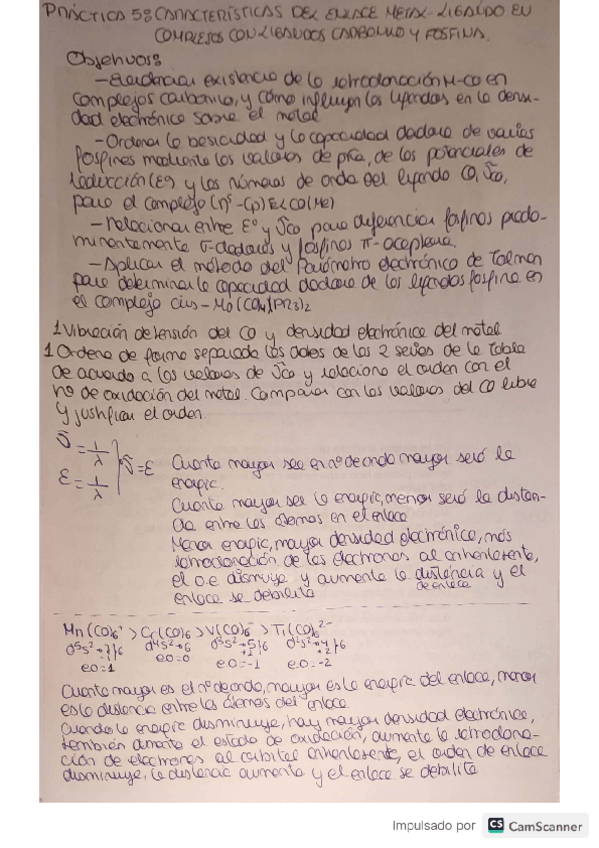 PRÁCTICA 5: CARACTERÍSTICAS DEL ENLACE METAL-LIGANDO EN
COMPLEJOS CON LIGANDOS CARBONILO Y FOSFINA.
Objetivos:
- Evidenciar existencia de la retrodonación M-CO en
complejos carbonilo, y cómo influyen los ligandos en la densi-
dad electrónica sobre el metal
- Ordenar la basicidad y la capacidad dadora de varias
fosfinas mediante los valores de pKa, de los potenciales de
reducción (Eº) y los números de onda del ligando CO, ṽco,
para el complejo (η5-Cp) Fe CO (Me)
- Relacionar entre Eº y ṽco para diferenciar fosfinas predo-
minantemente σ-dadoras y fosfinas π-aceptoras.
- Aplicar el método del Parámetro electrónico de Tolman
para determinar la capacidad dadora de los ligandos fosfina en
el complejo cis-Mo(CO)4(PR3)2
1 Vibración de tensión del CO y densidad electrónica del metal
1 Ordena de forma separada los datos de las 2 series de la tabla
de acuerdo a los valores de ṽco y relaciona el orden con el
nº de oxidación del metal. Comparar con los valores del CO libre
y justificar el orden.
ṽ = 1/λ
E = 1/λ
ṽ = E
Cuanto mayor sea en nº de onda mayor será la
energía.
Cuanto mayor sea la energía, menor será la distan-
cia entre los átomos en el enlace
Menor energía, mayor densidad electrónica, más
retrodonación de los electrones al antienlazante,
el o.e disminuye y aumenta la distancia y el
de enlace
enlace se debilita
Mn(CO)6+ > Cr(CO)6 > V(CO)6- > Ti(CO)6 2-
d5s2 d4s2 d3s2 d2s2
e.o=1 e.o=0 e.o=-1 e.o=-2
Cuanto mayor es el nº de onda, mayor es la energía del enlace, menor
es la distancia entre los átomos del enlace.
Cuando la energía disminuye, hay mayor densidad electrónica,
también aumenta el estado de oxidación, aumenta la retrodona-
ción de electrones al orbital antienlazante, el orden de enlace
disminuye, la distancia aumenta y el enlace se debilita
Impulsado por CS CamScanner